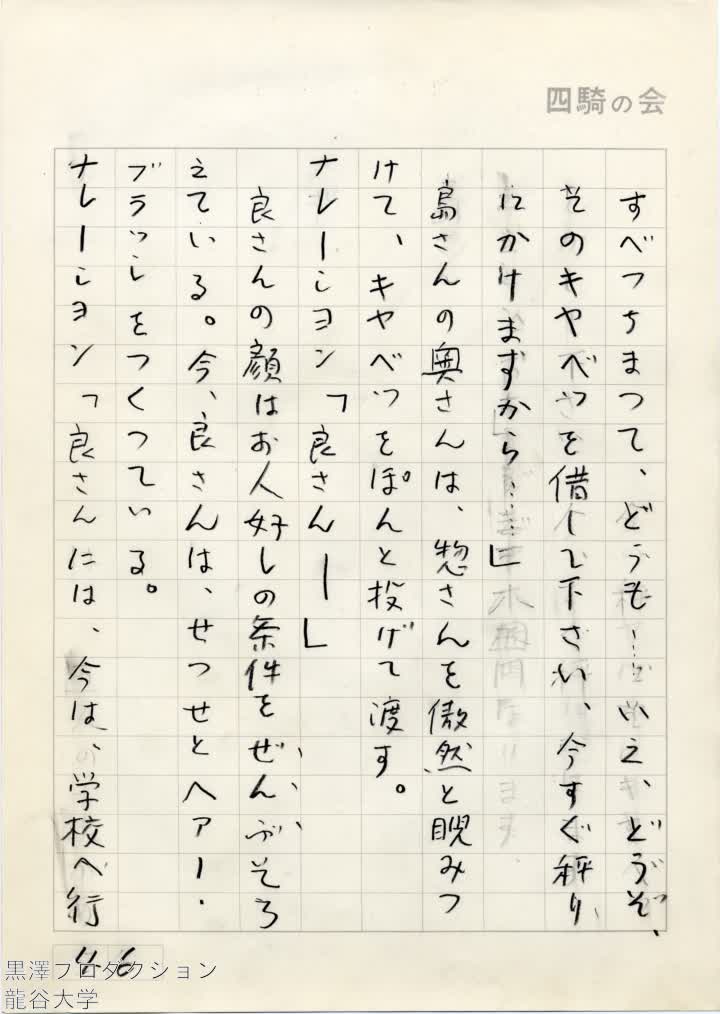 四騎の会
すべつちまつて、どうも…いえ、どうぞ、
そのキヤベツを借して下さい、今すぐ秤り
にかけまずから……」
島さんの奥さんは、惣さんを傲然と睨みつ
けて、キヤベツをぽんと投げて渡す。
ナレーシヨン「良さん――」
良さんの顔はお人好しの条件をぜんぶそろ
えている。今、良さんは、せつせとヘアー・
ブラツシをつくつている。
ナレーシヨン「良さんには、今は、学校へ行
46
黒澤プロダクション
龍谷大学